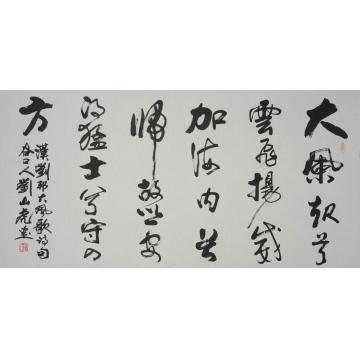 大風起兮
雲飛揚威
加海内兮
歸故鄉安
得猛士兮守四
方
漢劉邦大風歌詩句
谷口人劉山虎書